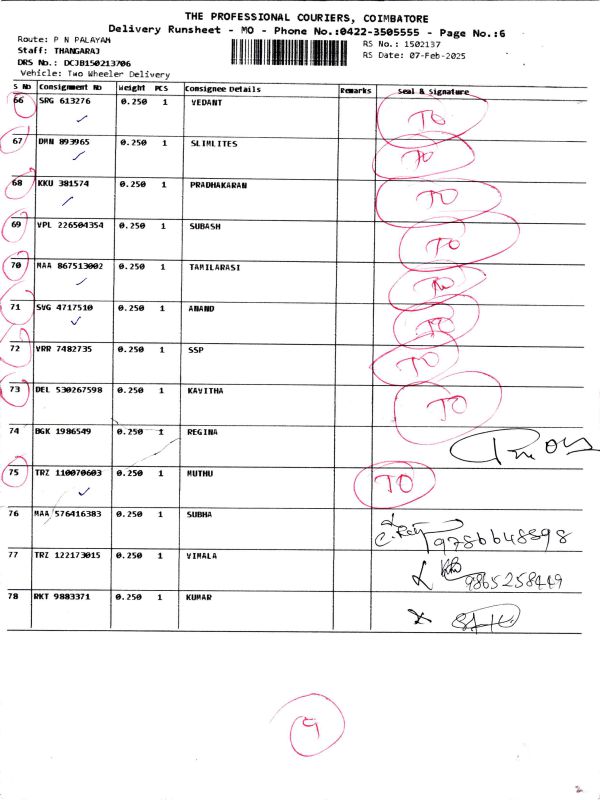 THE PROFESSIONAL COURIERS, COIMBATORE
Delivery Runsheet - MO - Phone No.:0422-3505555 - Page No.:6
Route: P N PALAYAM
Staff: THANGARAJ
DRS No.: DCJB150213706
Vehicle: Two Wheeler Delivery
RS No.: 1502137
RS Date: 07-Feb-2025
S No Consignment No Weight PCS Consignee Details Remarks Seal & Signature
66 SRG 613276 0.250 1 VEDANT TO
67 DMN 893965 0.250 1 SLIMLITES TO
68 KKU 381574 0.250 1 PRADHAKARAN TO
69 VPL 226504354 0.250 1 SUBASH TO
70 MAA 867513002 0.250 1 TAMILARASI TO
71 SVG 4717510 0.250 1 ANAND TO
72 VRR 7482735 0.250 1 SSP TO
73 DEL 530267598 0.250 1 KAVITHA TO
74 BGK 1986549 0.250 1 REGINA
75 TRZ 110070603 0.250 1 MUTHU TO
76 MAA 576416383 0.250 1 SUBHA 9786648898
77 TRZ 122173015 0.250 1 VIMALA 9865258449
78 RKT 9883371 0.250 1 KUMAR
9